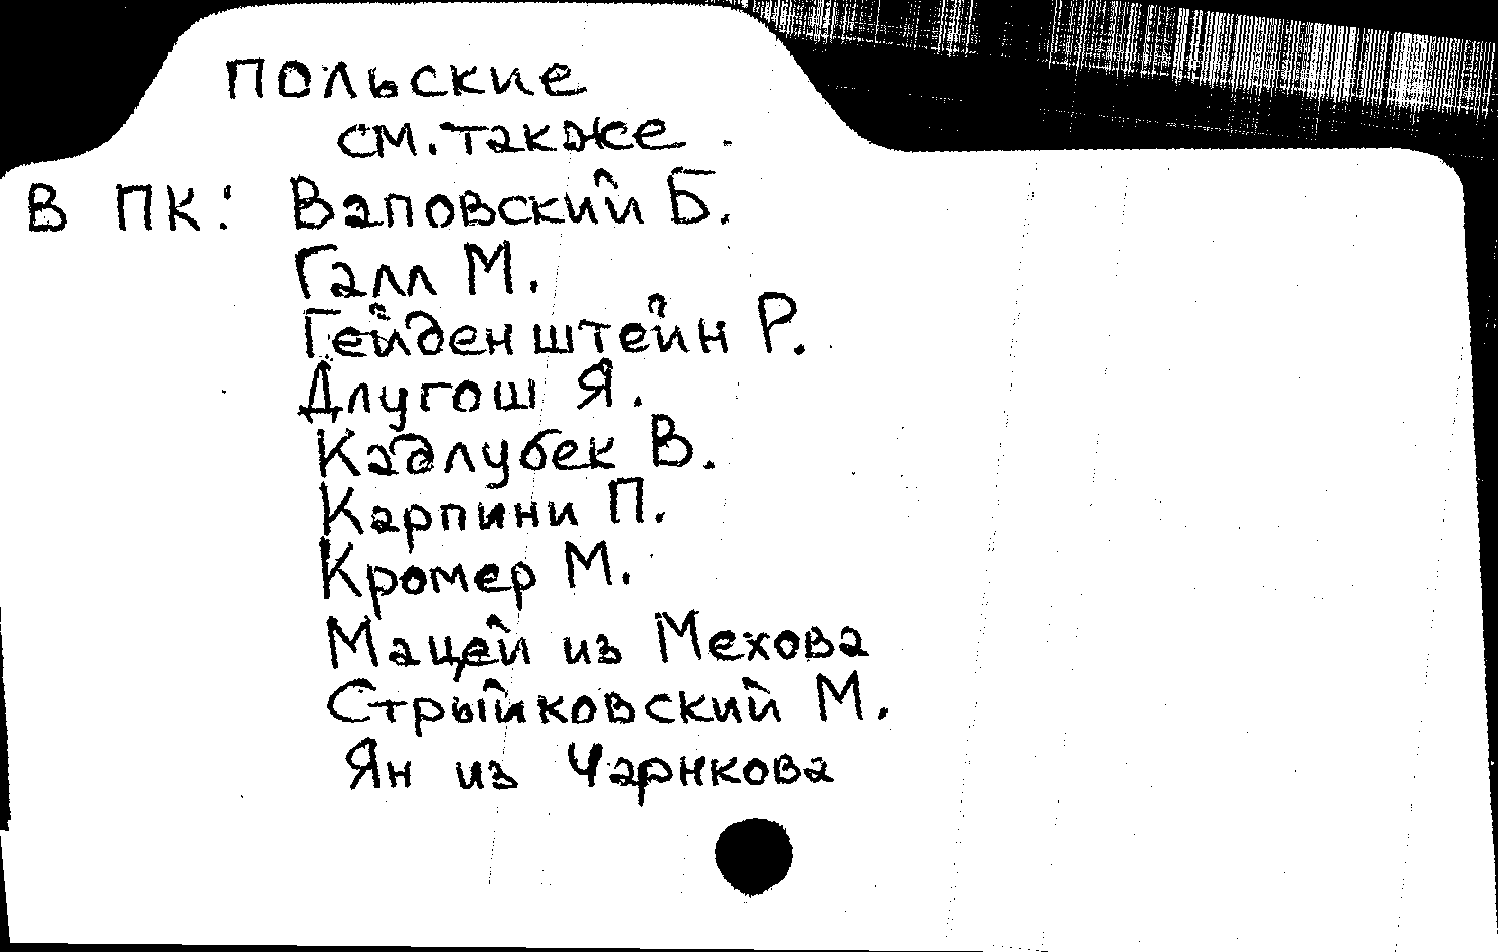 польские
см. также.
В ПК: Ваповский Б.
Галл М.
Гейденштейн Р.
Длугош Я.
Кадлубек В.
Карпини П.
Кромер М.
Мацей из Мехова
Стрыйковский М.
Ян из Чарнкова